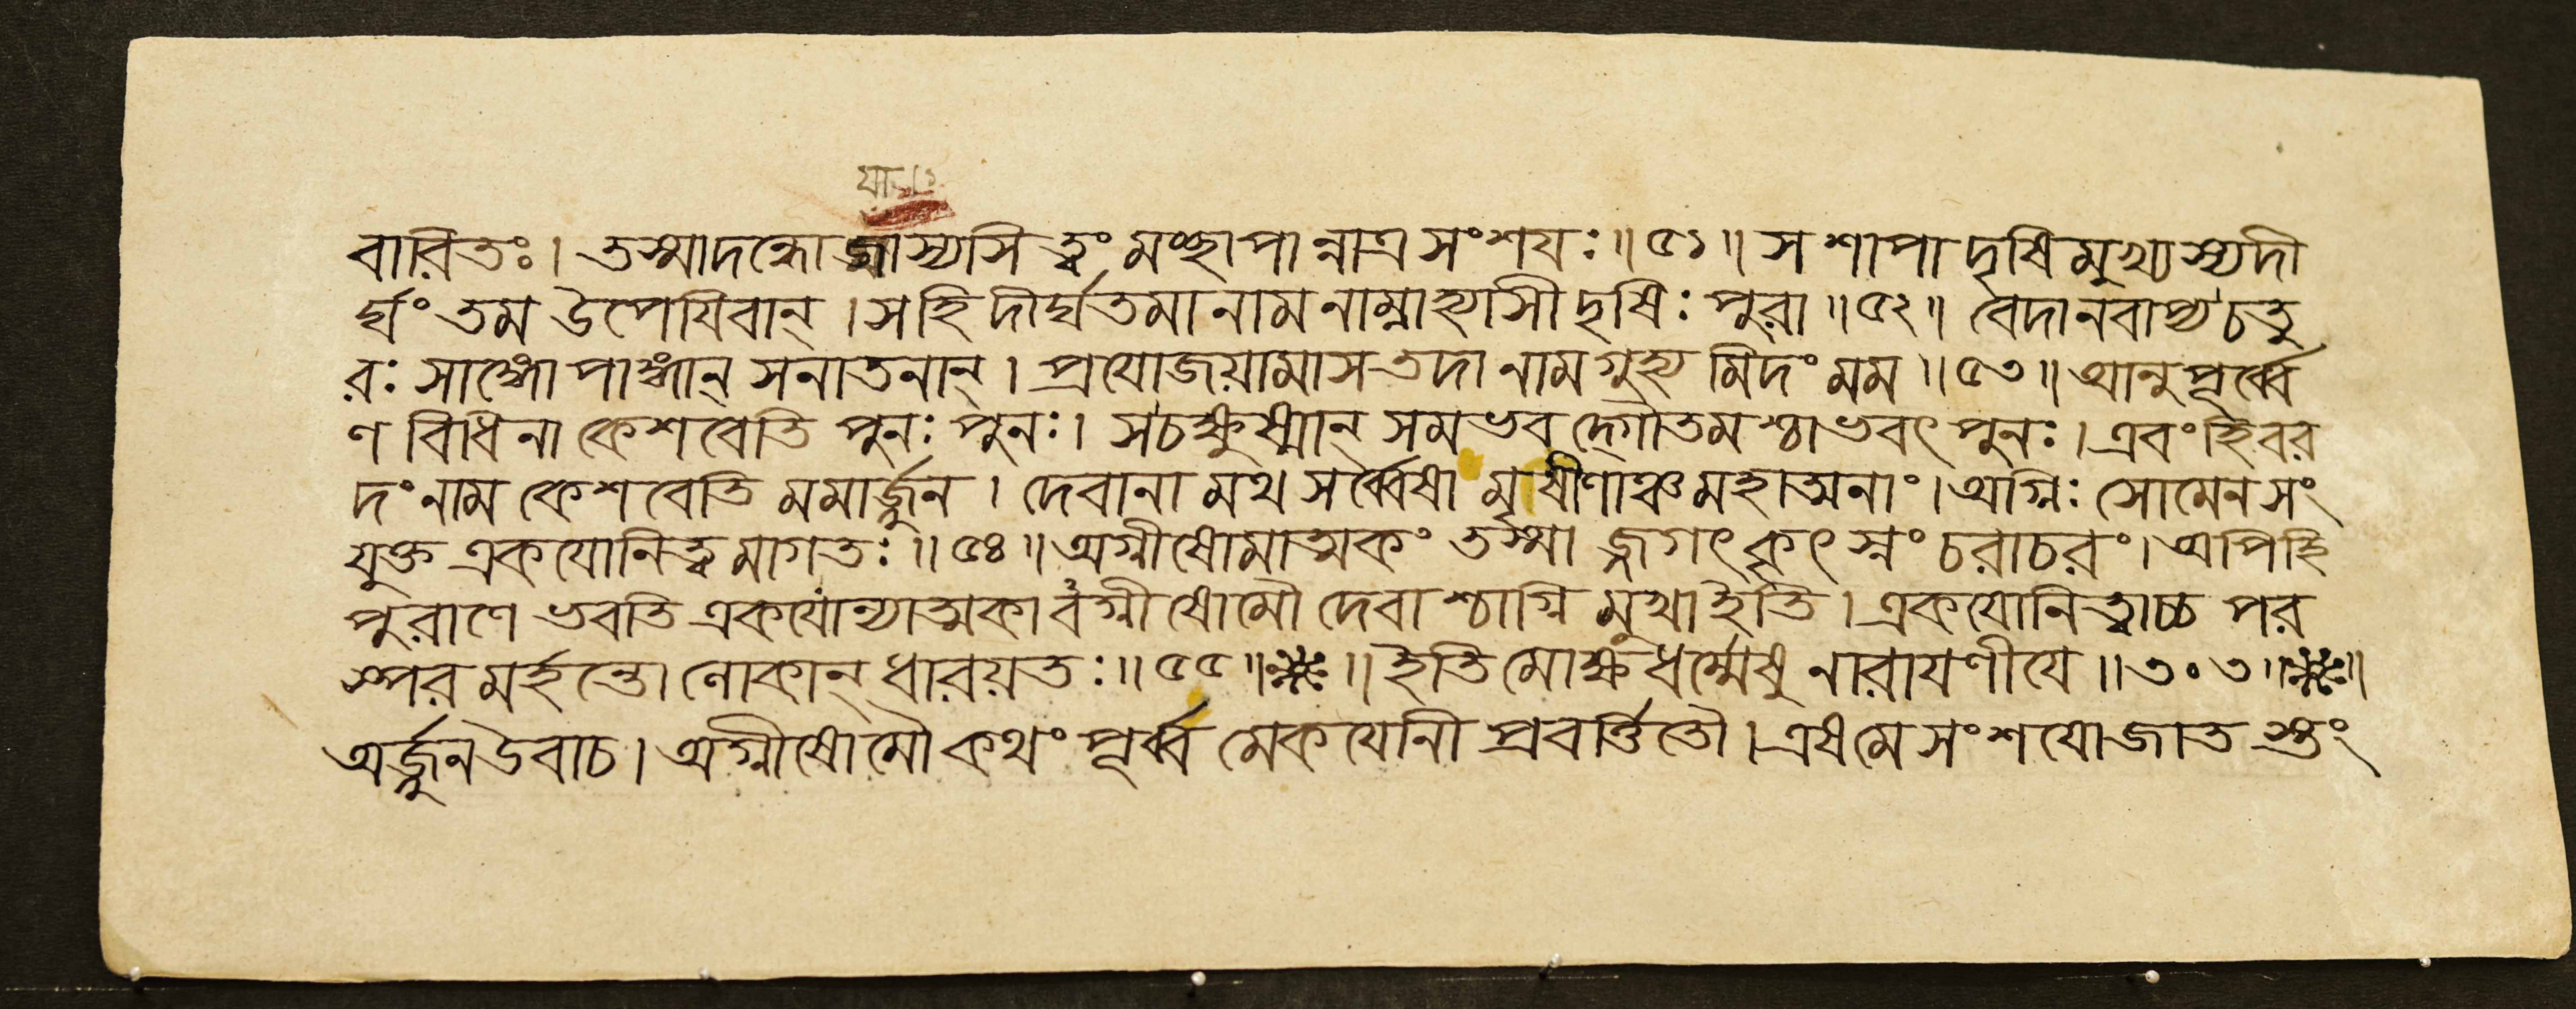 বারিতঃ। তস্মাদন্ধো জাস্যসি ত্বং মচ্ছাপান্নাত্র সংশযঃ॥৫১॥ স শাপাদৃষিমুখ্যস্যদী
র্ঘং তম উপেযিবান্। সহি দীর্ঘতমা নাম নাম্নাহ্যাসীদৃষিঃ পুরা॥৫২॥ বেদানবাপ্যচতু
রঃ সাঙ্গোপাঙ্গান্ সনাতনান্। প্রযোজয়ামাস তদা নাম গুহ্যমিদং মম॥৫৩॥ আনুপূর্ব্বে
ণ বিধিনা কেশবেতি পুনঃ পুনঃ। সচক্ষুষ্মান্ সমভবদ্গৌতমশ্চাভবৎ পুনঃ। এবংহিবর
দং নাম কেশবেতি মমার্জ্জুন। দেবানামথ সর্ব্বেষামৃষীণাঞ্চ মহাত্মনাং। অগ্নিঃ সোমেন সং
যুক্ত একযোনিত্বমাগতঃ॥৫৪॥ অগ্নীষোমাত্মকং তস্মাজ্জগৎকৃৎস্নং চরাচরং। অপিহি
পুরাণে ভবতি একযোন্যাত্মকাবগ্নীষোমৌ দেবাশ্চাগ্নিমুখাইতি। একযোনিত্বাচ্চ পর
স্পরমর্হন্তো লোকান্ ধারয়তঃ॥৫৫॥ ॥ ইতি মোক্ষধর্ম্মেষু নারাযণীযে॥৩০৩॥ ॥
অর্জ্জুন উবাচ। অগ্নীষোমৌ কথং পূর্ব্বমেকযোনী প্রবর্ত্তিতৌ। এষমে সংশযোজাতস্তং